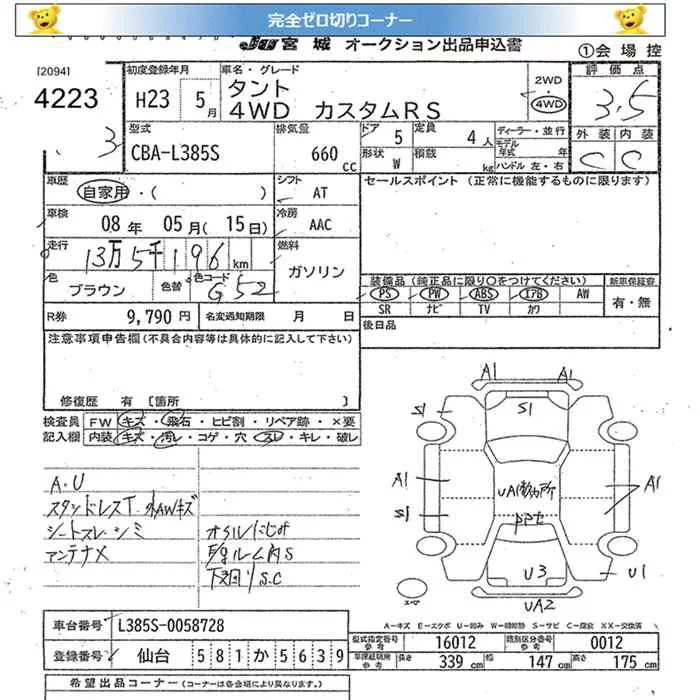 完全ゼロ切りコーナー
JU宮城 オークション出品申込書
①会場控
[2094]
4223
3
初度登録年月
H23 5月
車名・グレード
タント
4WD カスタムRS
2WD
・
4WD
評価点
3.5
外装 内装
C C
型式
CBA-L385S
排気量
660cc
ドア 5
形状 W
定員 4人
積載 kg
ディーラー・並行
モデル年式 年
ハンドル 左・右
車歴 自家用・( )
シフト AT
セールスポイント (正常に機能するものに限ります)
車検 08年 05月(15日)
冷房 AAC
走行 13万5千196km
燃料 ガソリン
色 ブラウン 色替 色コード G52
装備品(純正品に限り〇をつけてください) 新車保証書
PS PW ABS エアB AW
SR ナビ TV カワ
有・無
R券 9,790円 名変通知期限 月 日
後日品
注意事項申告欄(不具合内容等は具体的に記入して下さい)
修復歴 有 [箇所 ]
検査員 FW キズ・飛石・ヒビ割・リペア跡・×要
記入欄 内装 キズ・汚レ・コゲ・穴・スレ・キレ・破レ
A・U
スタッドレスT 外AWキズ
シートスレ・シミ
アンテナX
オイルにじみ
下廻りS.C
A1
S1 S1
A1 A1
S1
U3 U1
UA2
スペア
A-キズ E-エクボ U-凹み W-補修跡 S-サビ C-腐食 XX-交換済
車台番号 L385S-0058728
登録番号 仙台 581か5639
型式指定番号 参考 16012 類別区分番号 参考 0012
車検証明席 参考 長さ 339cm 幅 147cm 高さ 175cm
希望出品コーナー(コーナーは各会場により異なります)